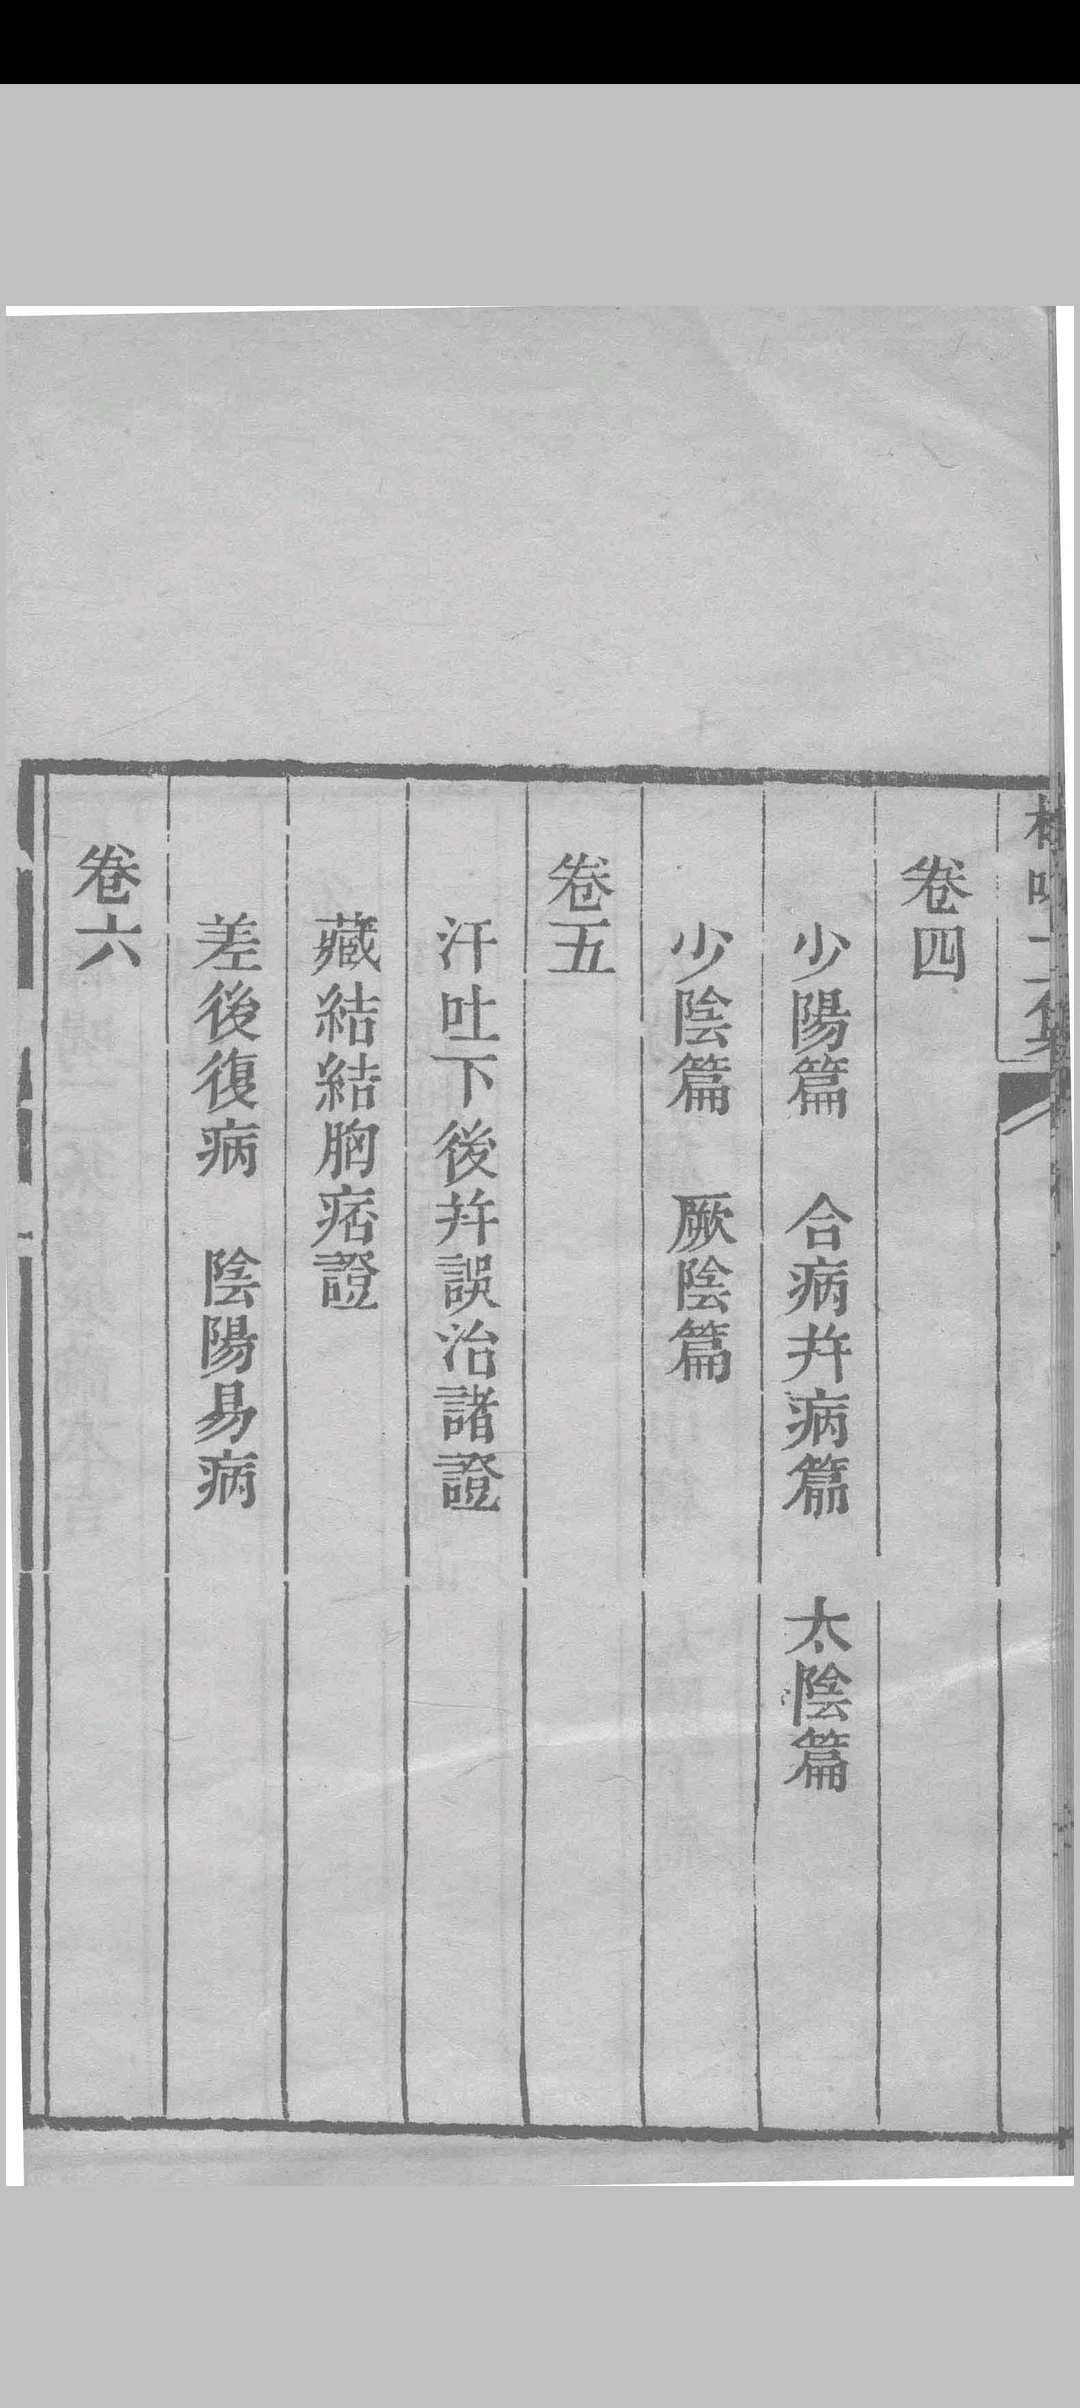 卷四
少陽篇　合病并病篇　太陰篇
少陰篇　厥陰篇
卷五
汗吐下後并誤治諸證
藏結結胸痞證
差後復病　陰陽易病
卷六